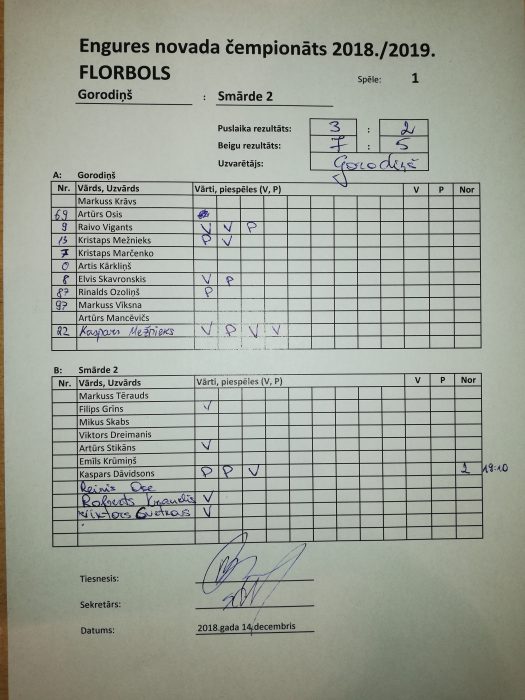 Engures novada čempionāts 2018./2019.
FLORBOLS
Spēle: 1
Gorodiņš : Smārde 2
Puslaika rezultāts: 3 : 2
Beigu rezultāts: 7 : 5
Uzvarētājs: Gorodiņš
A: Gorodiņš
Nr. Vārds, Uzvārds Vārti, piespēles (V, P) V P Nor
Markuss Krāvs
69 Artūrs Osis
9 Raivo Vigants V V P
13 Kristaps Mežnieks P V
7 Kristaps Marčenko
0 Artis Kārkliņš
8 Elvis Skavronskis V P
87 Rinalds Ozoliņš P
97 Markuss Vīksna
Artūrs Mancēvičs
22 Kaspars Mežnieks V P V V
B: Smārde 2
Nr. Vārds, Uzvārds Vārti, piespēles (V, P) V P Nor
Markuss Tērauds
Filips Grīns V
Mikus Skabs
Viktors Dreimanis
Artūrs Stikāns V
Emīls Krūmiņš
Kaspars Dāvidsons P P V 2 19:10
Reinis
Roberts V
Viktors V
Tiesnesis:
Sekretārs:
Datums: 2018.gada 14.decembris